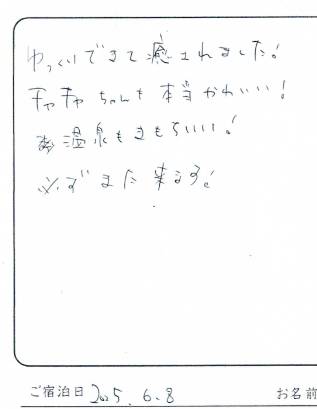 ゆっくりできて癒されました!
チャチャちゃんも本当かわいい!
温泉もきもちいい!
必ずまた来ます!
ご宿泊日 2025. 6. 8 お名前